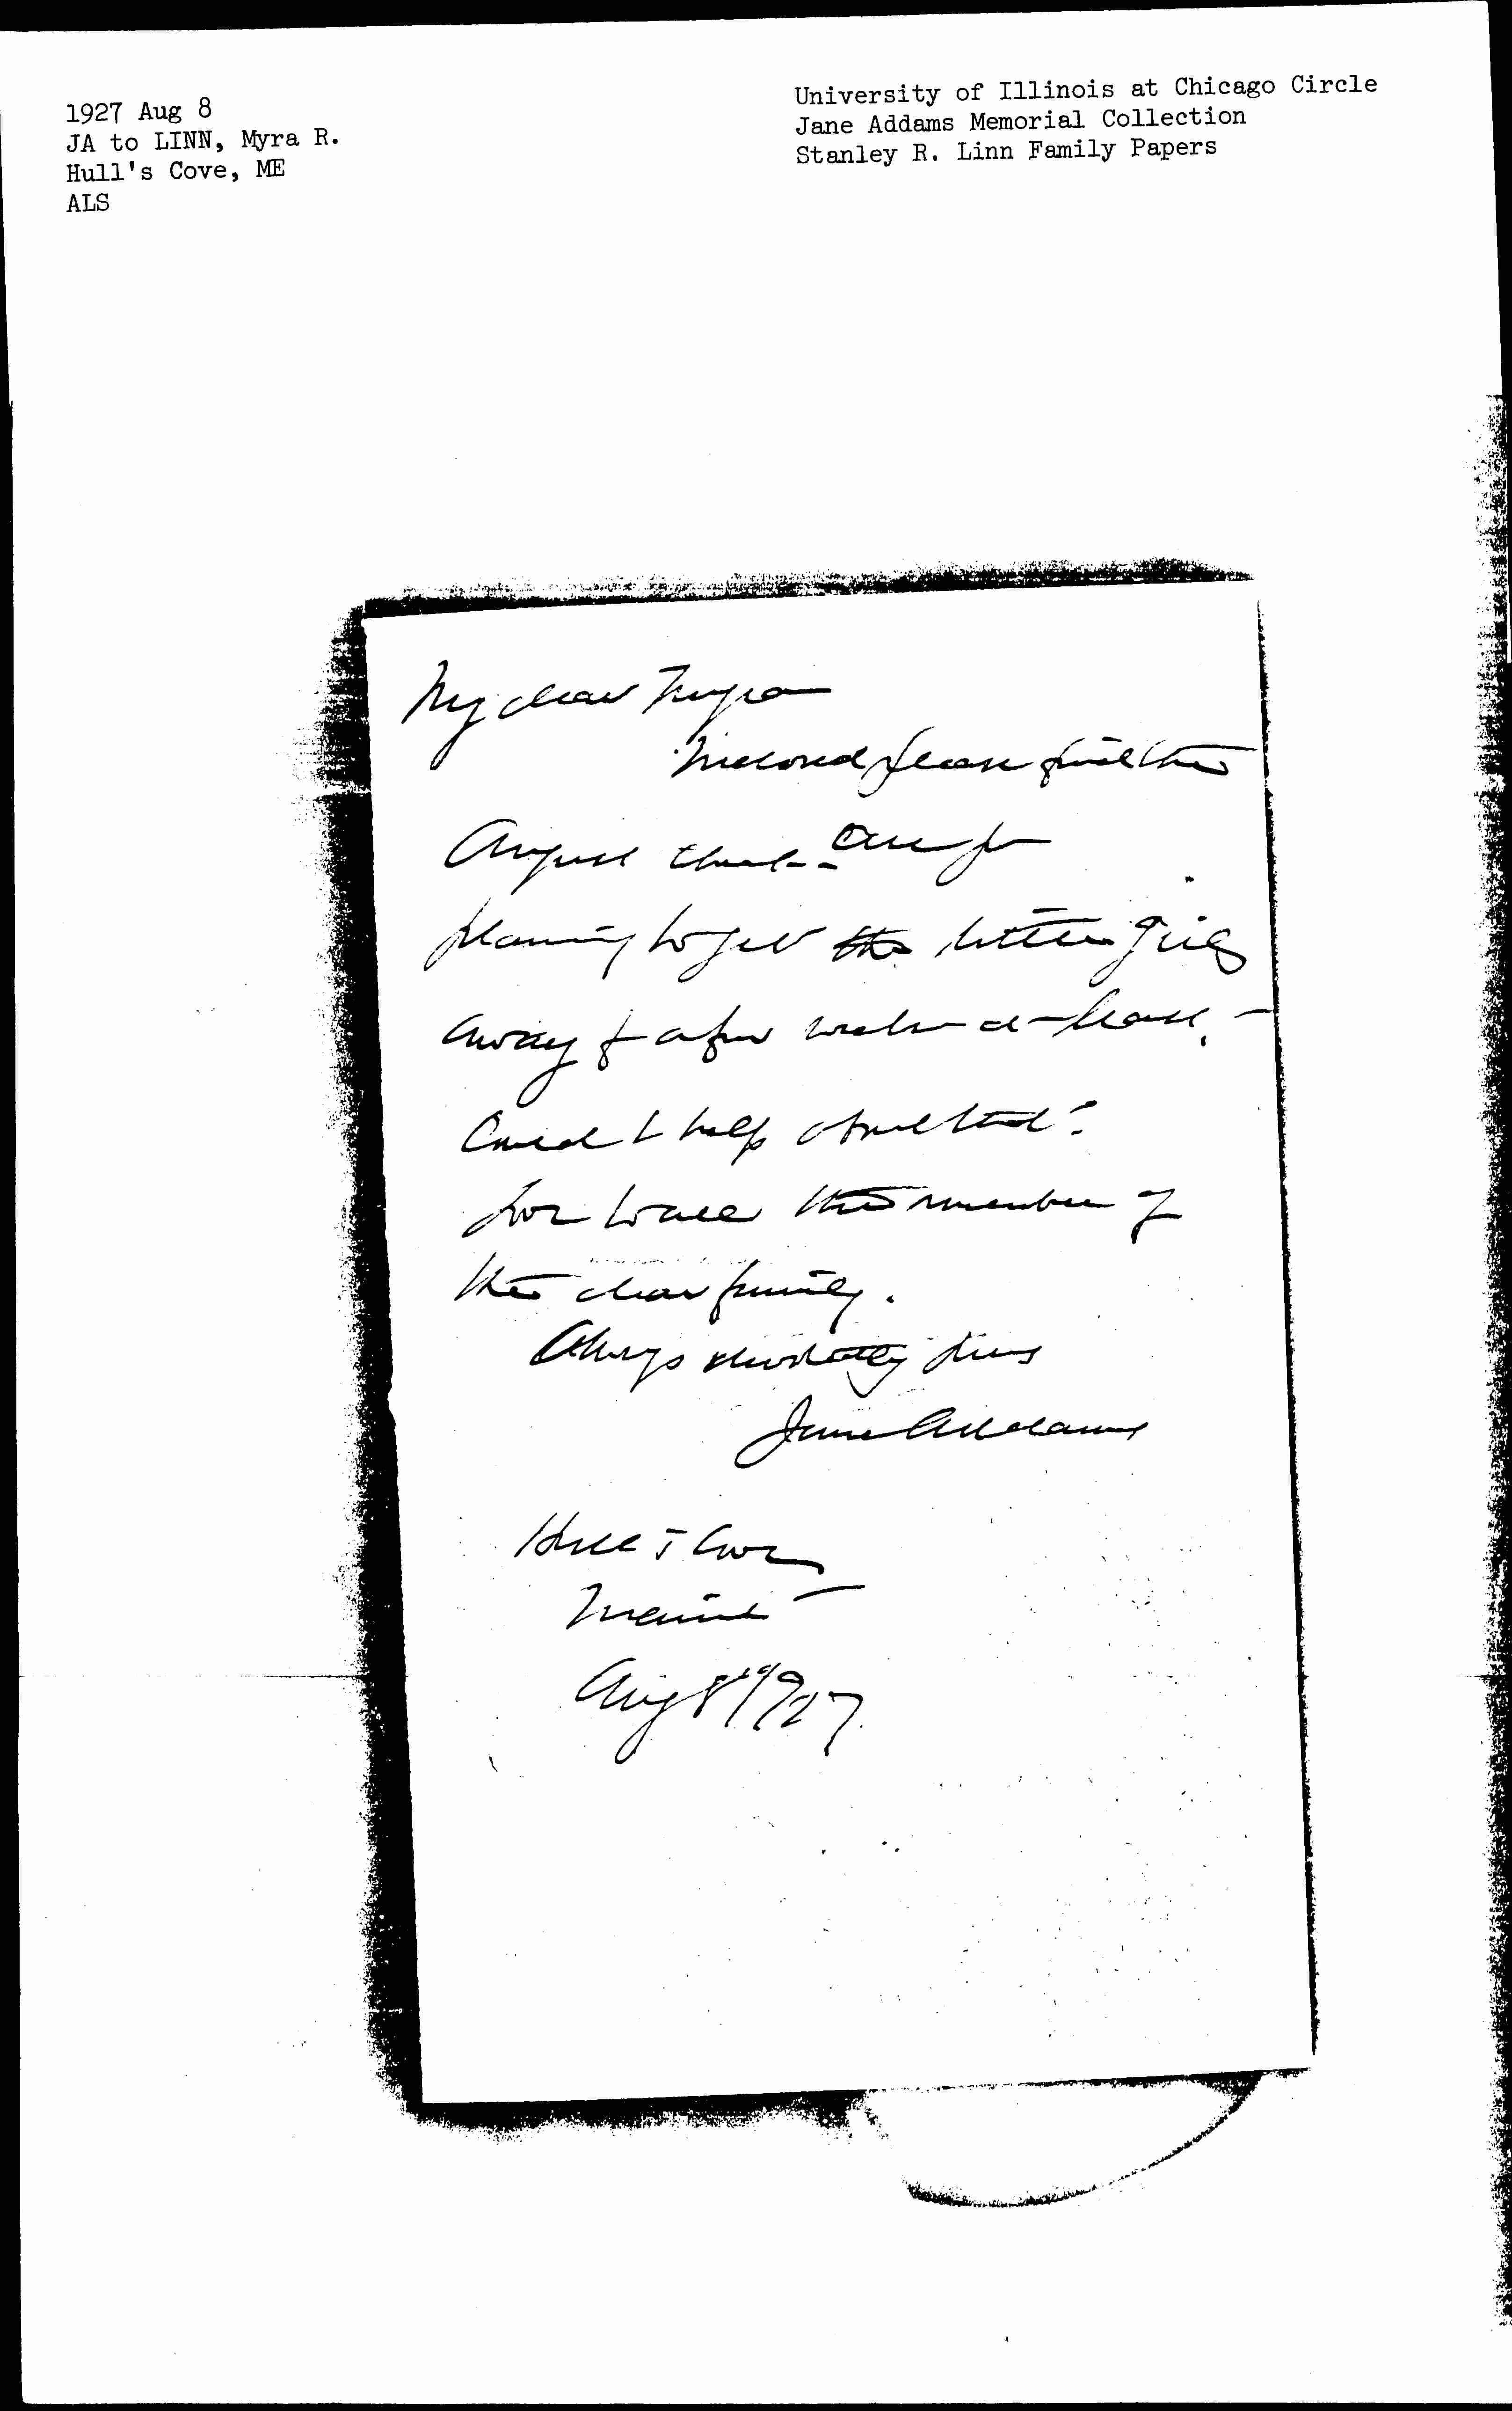 1927 Aug 8
JA to LINN, Myra R.
Hull's Cove, ME
ALS
University of Illinois at Chicago Circle
Jane Addams Memorial Collection
Stanley R. Linn Family Papers
My dear Myra
Inclosed please find the
August check - Are you
planning to get the little girls
away for a few weeks at least, -
Could I help about that?
Love to all the members of
the dear family.
Always devotedly yours
Jane Addams
Hull's Cove
Maine -
Aug 8" 1927.